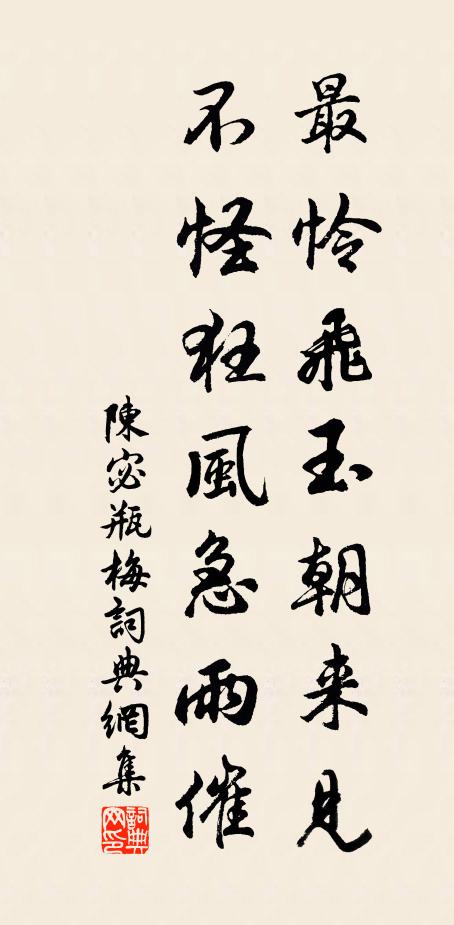 最怜飛玉朝来見
不怪狂風急雨催
陳宓瓶梅詞典網集
詞典网印